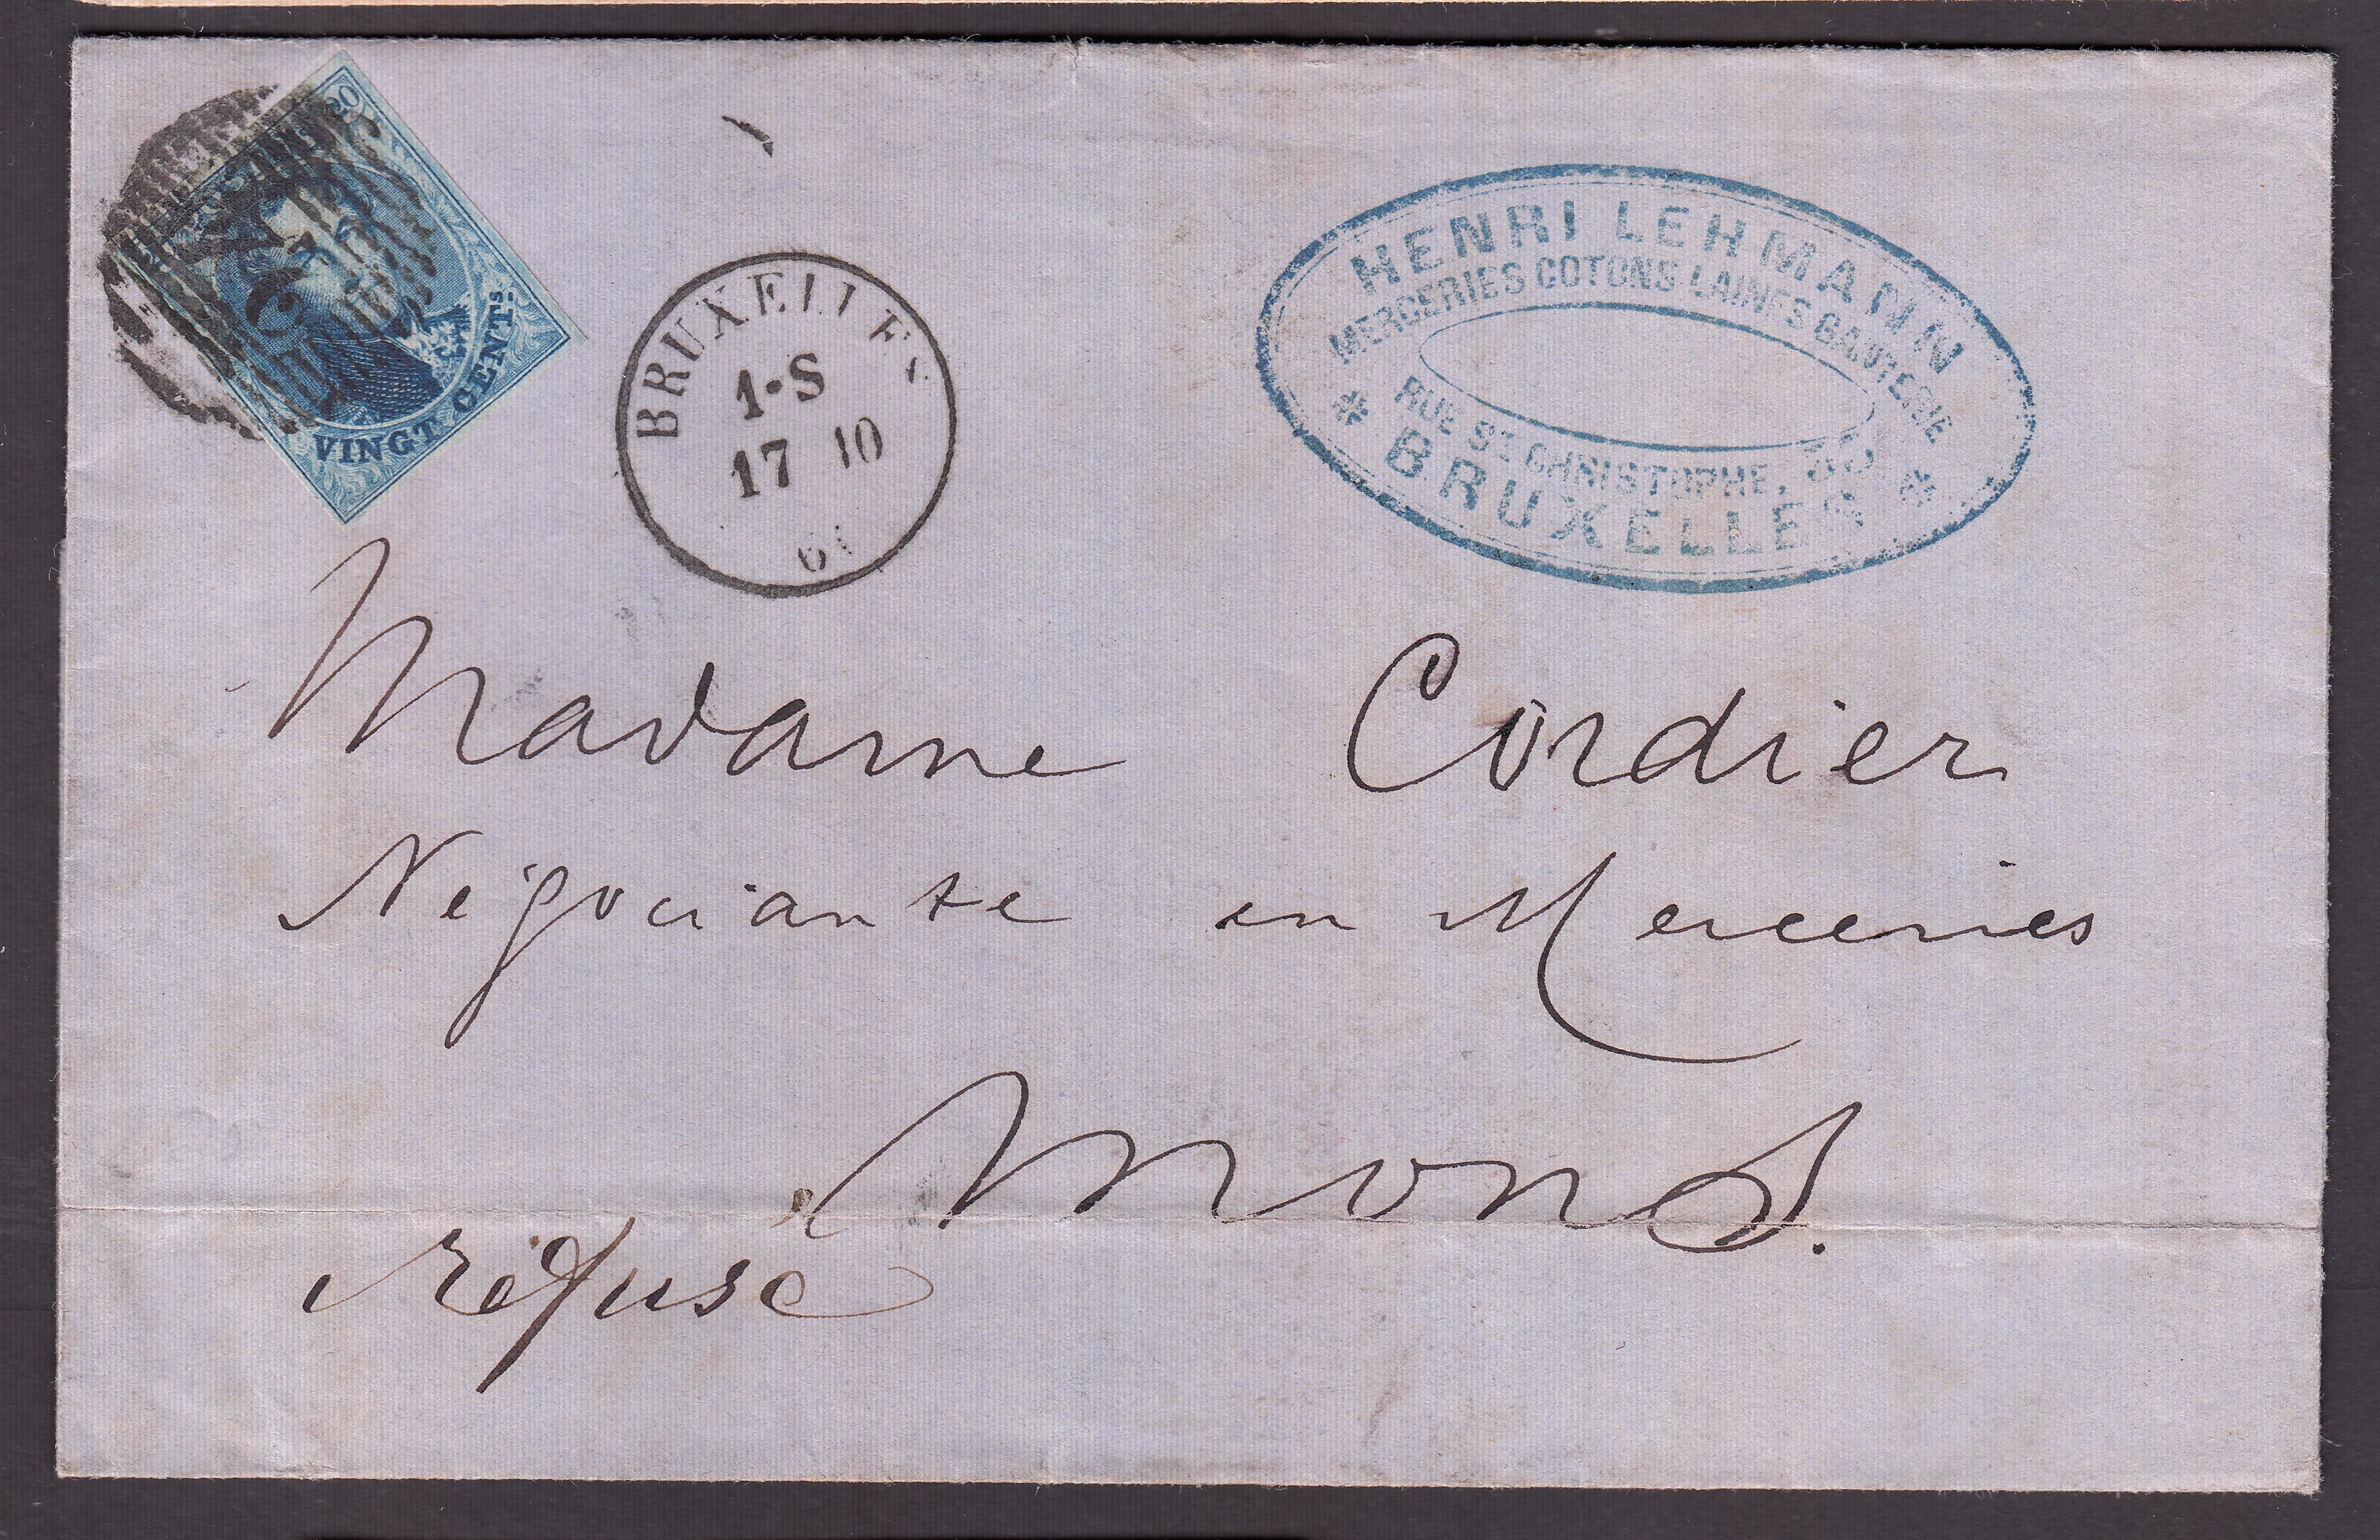 20
VINGT CENTS.
BRUXELLES
1•S
17 10
HENRI LEHMANN
MERCERIES COTONS LAINES GANTERIE
RUE ST CHRISTOPHE,
BRUXELLES
Madame Cordier
Négociante en Merceries
Mons.
réfusé